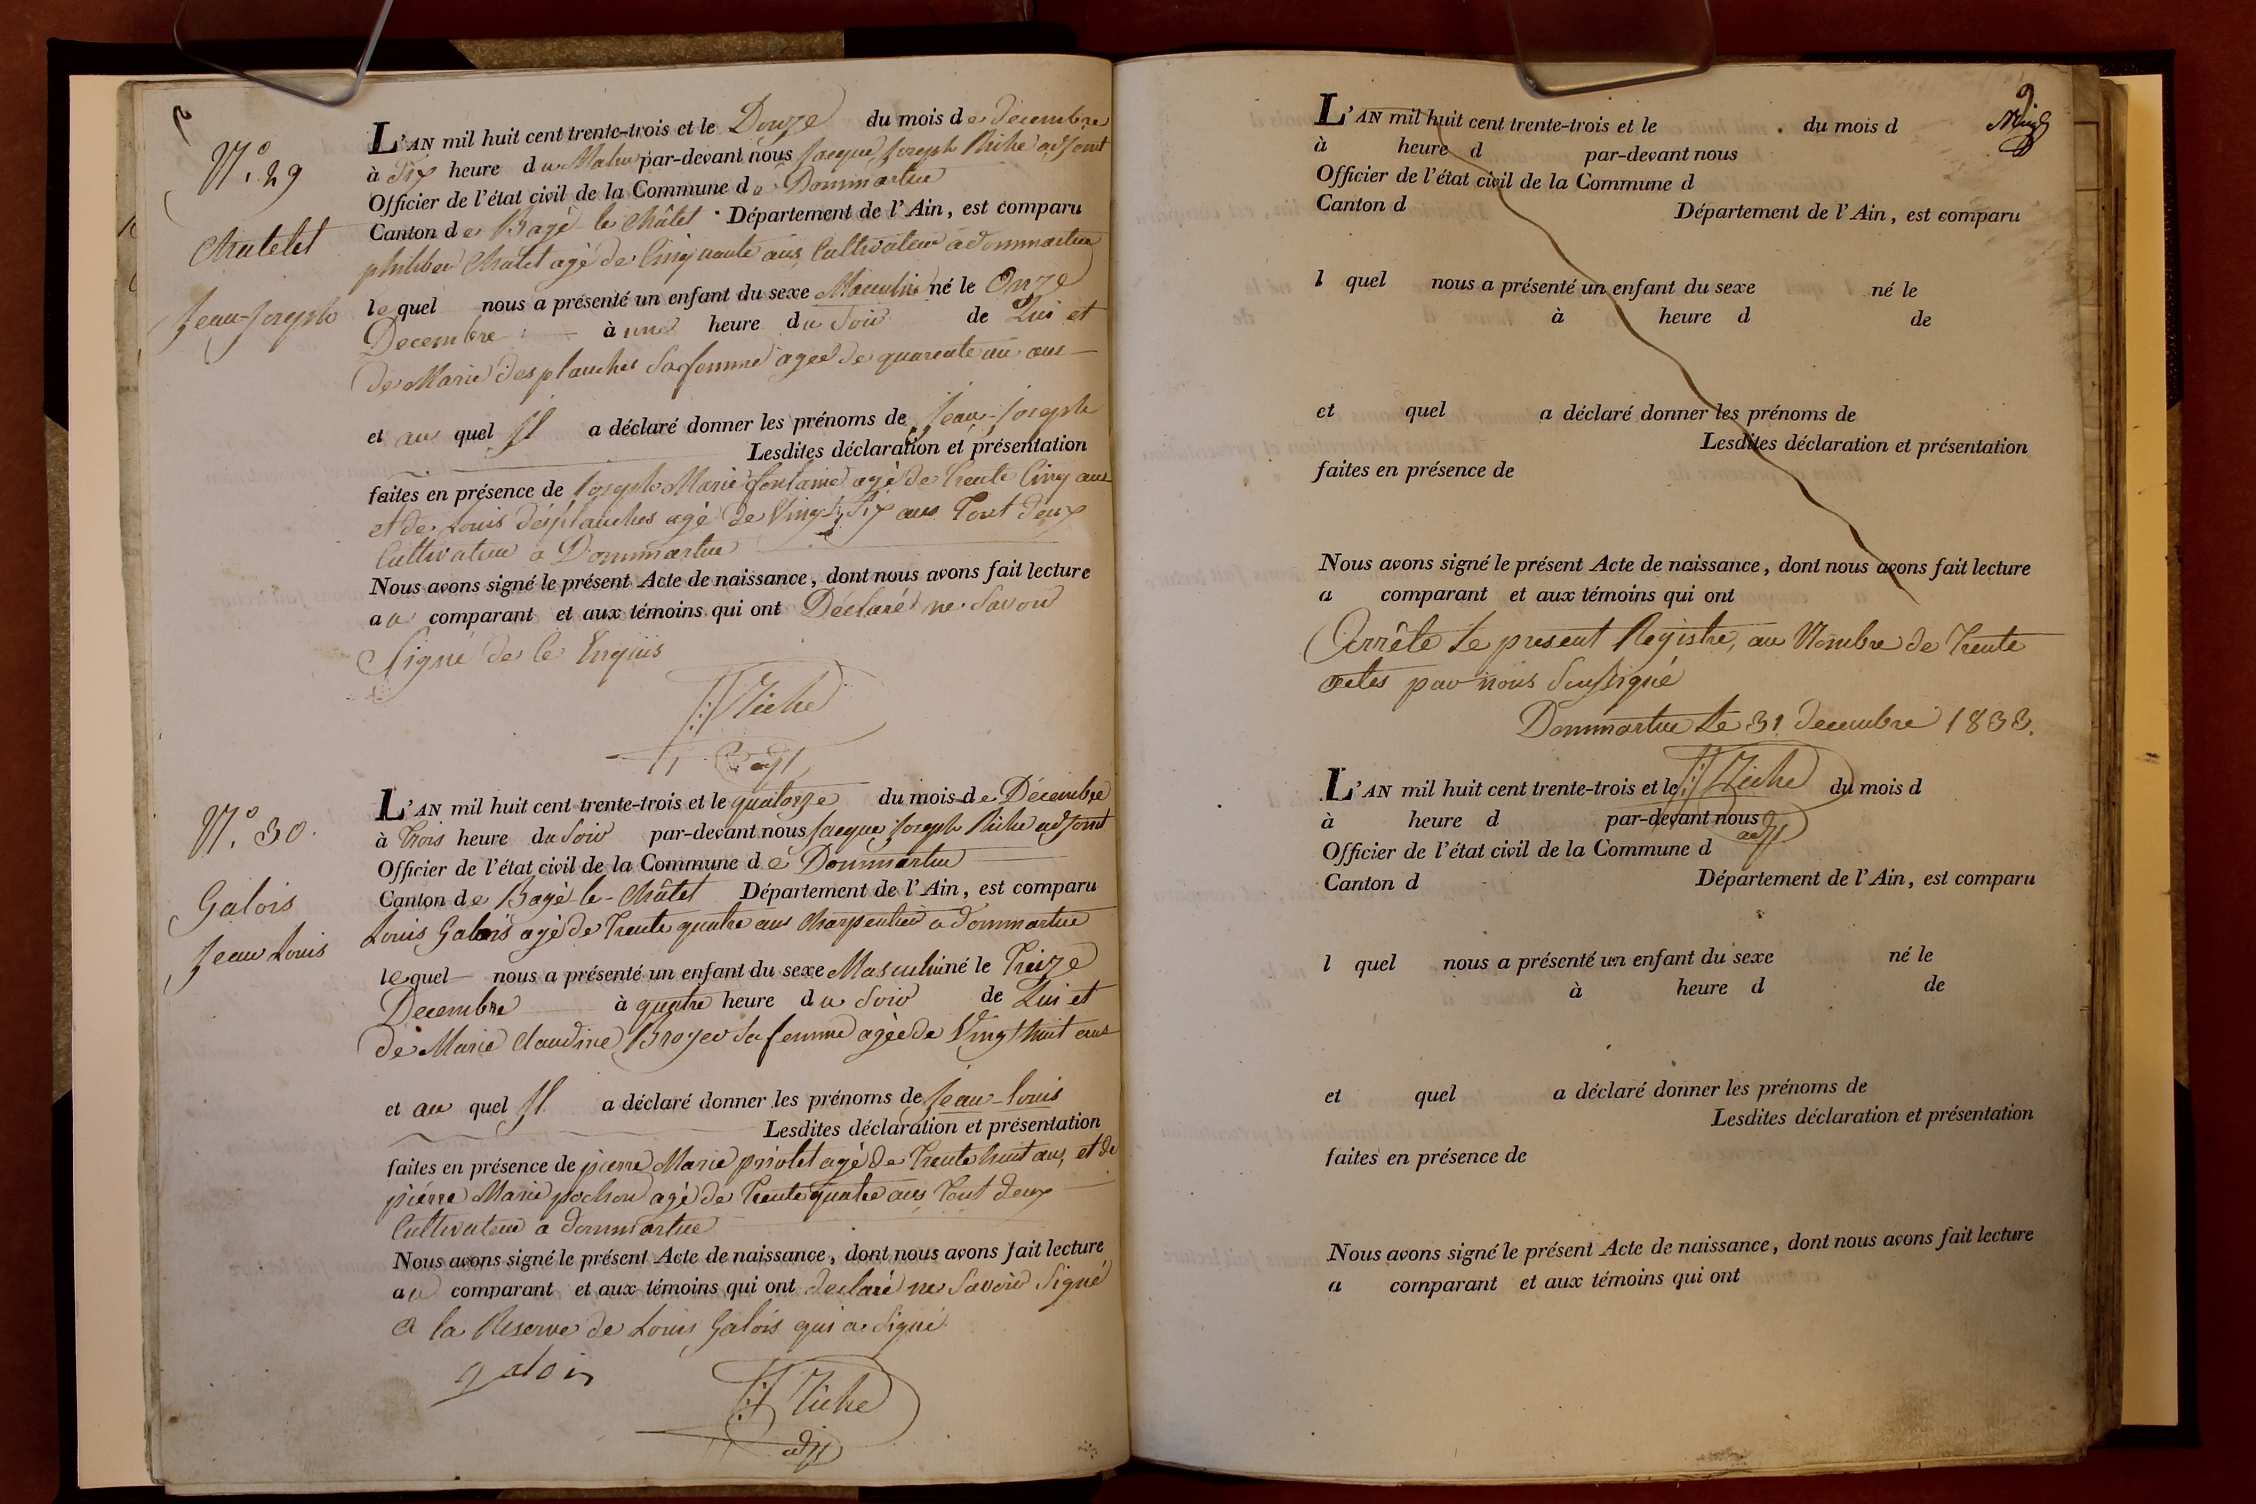 N.º 29
Chatelet
Jean-Joseph
L'AN mil huit cent trente-trois et le Douze du mois de decembre
à Six heure du Matin par-devant nous Jacque Joseph Riche adjoint
Officier de l'état civil de la Commune de Dommartin
Canton de Bagé le Châtel Département de l'Ain, est comparu
philiber Châtelet agé de Cinquante ans, Cultivateur a dommartin
lequel nous a présenté un enfant du sexe Masculin né le Onze
Decembre à une heure du Soir de Lui et
de Marie desplanches Sa femme agée de quarente un ans
et au quel Il a déclaré donner les prénoms de Jean-Joseph
Lesdites déclaration et présentation
faites en présence de Joseph Marie fontaine agé de Trente Cinq ans
et de Louis desplanches agé de Vingt Six ans Tout deux
Cultivateur a Dommartin
Nous avons signé le présent Acte de naissance, dont nous avons fait lecture
au comparant et aux témoins qui ont Déclaré ne Savoir
Signé de ce Enquis
JJ Riche
adjt
N.º 30.
Galois
Jean Louis
L'AN mil huit cent trente-trois et le quatorze du mois de Décembre
à Trois heure du Soir par-devant nous Jacque Joseph Riche adjoint
Officier de l'état civil de la Commune de Dommartin
Canton de Bagé-le-Châtel Département de l'Ain, est comparu
Louis Galois agé de Trente quatre ans Charpentier a dommartin
lequel nous a présenté un enfant du sexe Masculin né le Treize
Decembre à quatre heure du Soir de Lui et
de Marie Claudine Broyer Sa femme agée de Vingt huit ans
et au quel Il a déclaré donner les prénoms de Jean-Louis
Lesdites déclaration et présentation
faites en présence de pierre Marie priolet agé de Trente huit ans, et de
pierre Marie pochon agé de Trente quatre ans Tout deux
Cultivateur a dommartin
Nous avons signé le présent Acte de naissance, dont nous avons fait lecture
au comparant et aux témoins qui ont declaré ne Savoir Signé
a la Reserve de Louis Galois qui a Signé
galois
JJ Riche
adjt
9
L'AN mil huit cent trente-trois et le du mois d
à heure d par-devant nous
Officier de l'état civil de la Commune d
Canton d Département de l'Ain, est comparu
l quel nous a présenté un enfant du sexe né le
à heure d de
et quel a déclaré donner les prénoms de
Lesdites déclaration et présentation
faites en présence de
Nous avons signé le présent Acte de naissance, dont nous avons fait lecture
a comparant et aux témoins qui ont
Arrête le present Registre, au Nombre de Trente
actes par nous Soussigné
Dommartin le 31 decembre 1833.
JJ Riche
adjt
L'AN mil huit cent trente-trois et le du mois d
à heure d par-devant nous
Officier de l'état civil de la Commune d
Canton d Département de l'Ain, est comparu
l quel nous a présenté un enfant du sexe né le
à heure d de
et quel a déclaré donner les prénoms de
Lesdites déclaration et présentation
faites en présence de
Nous avons signé le présent Acte de naissance, dont nous avons fait lecture
a comparant et aux témoins qui ont